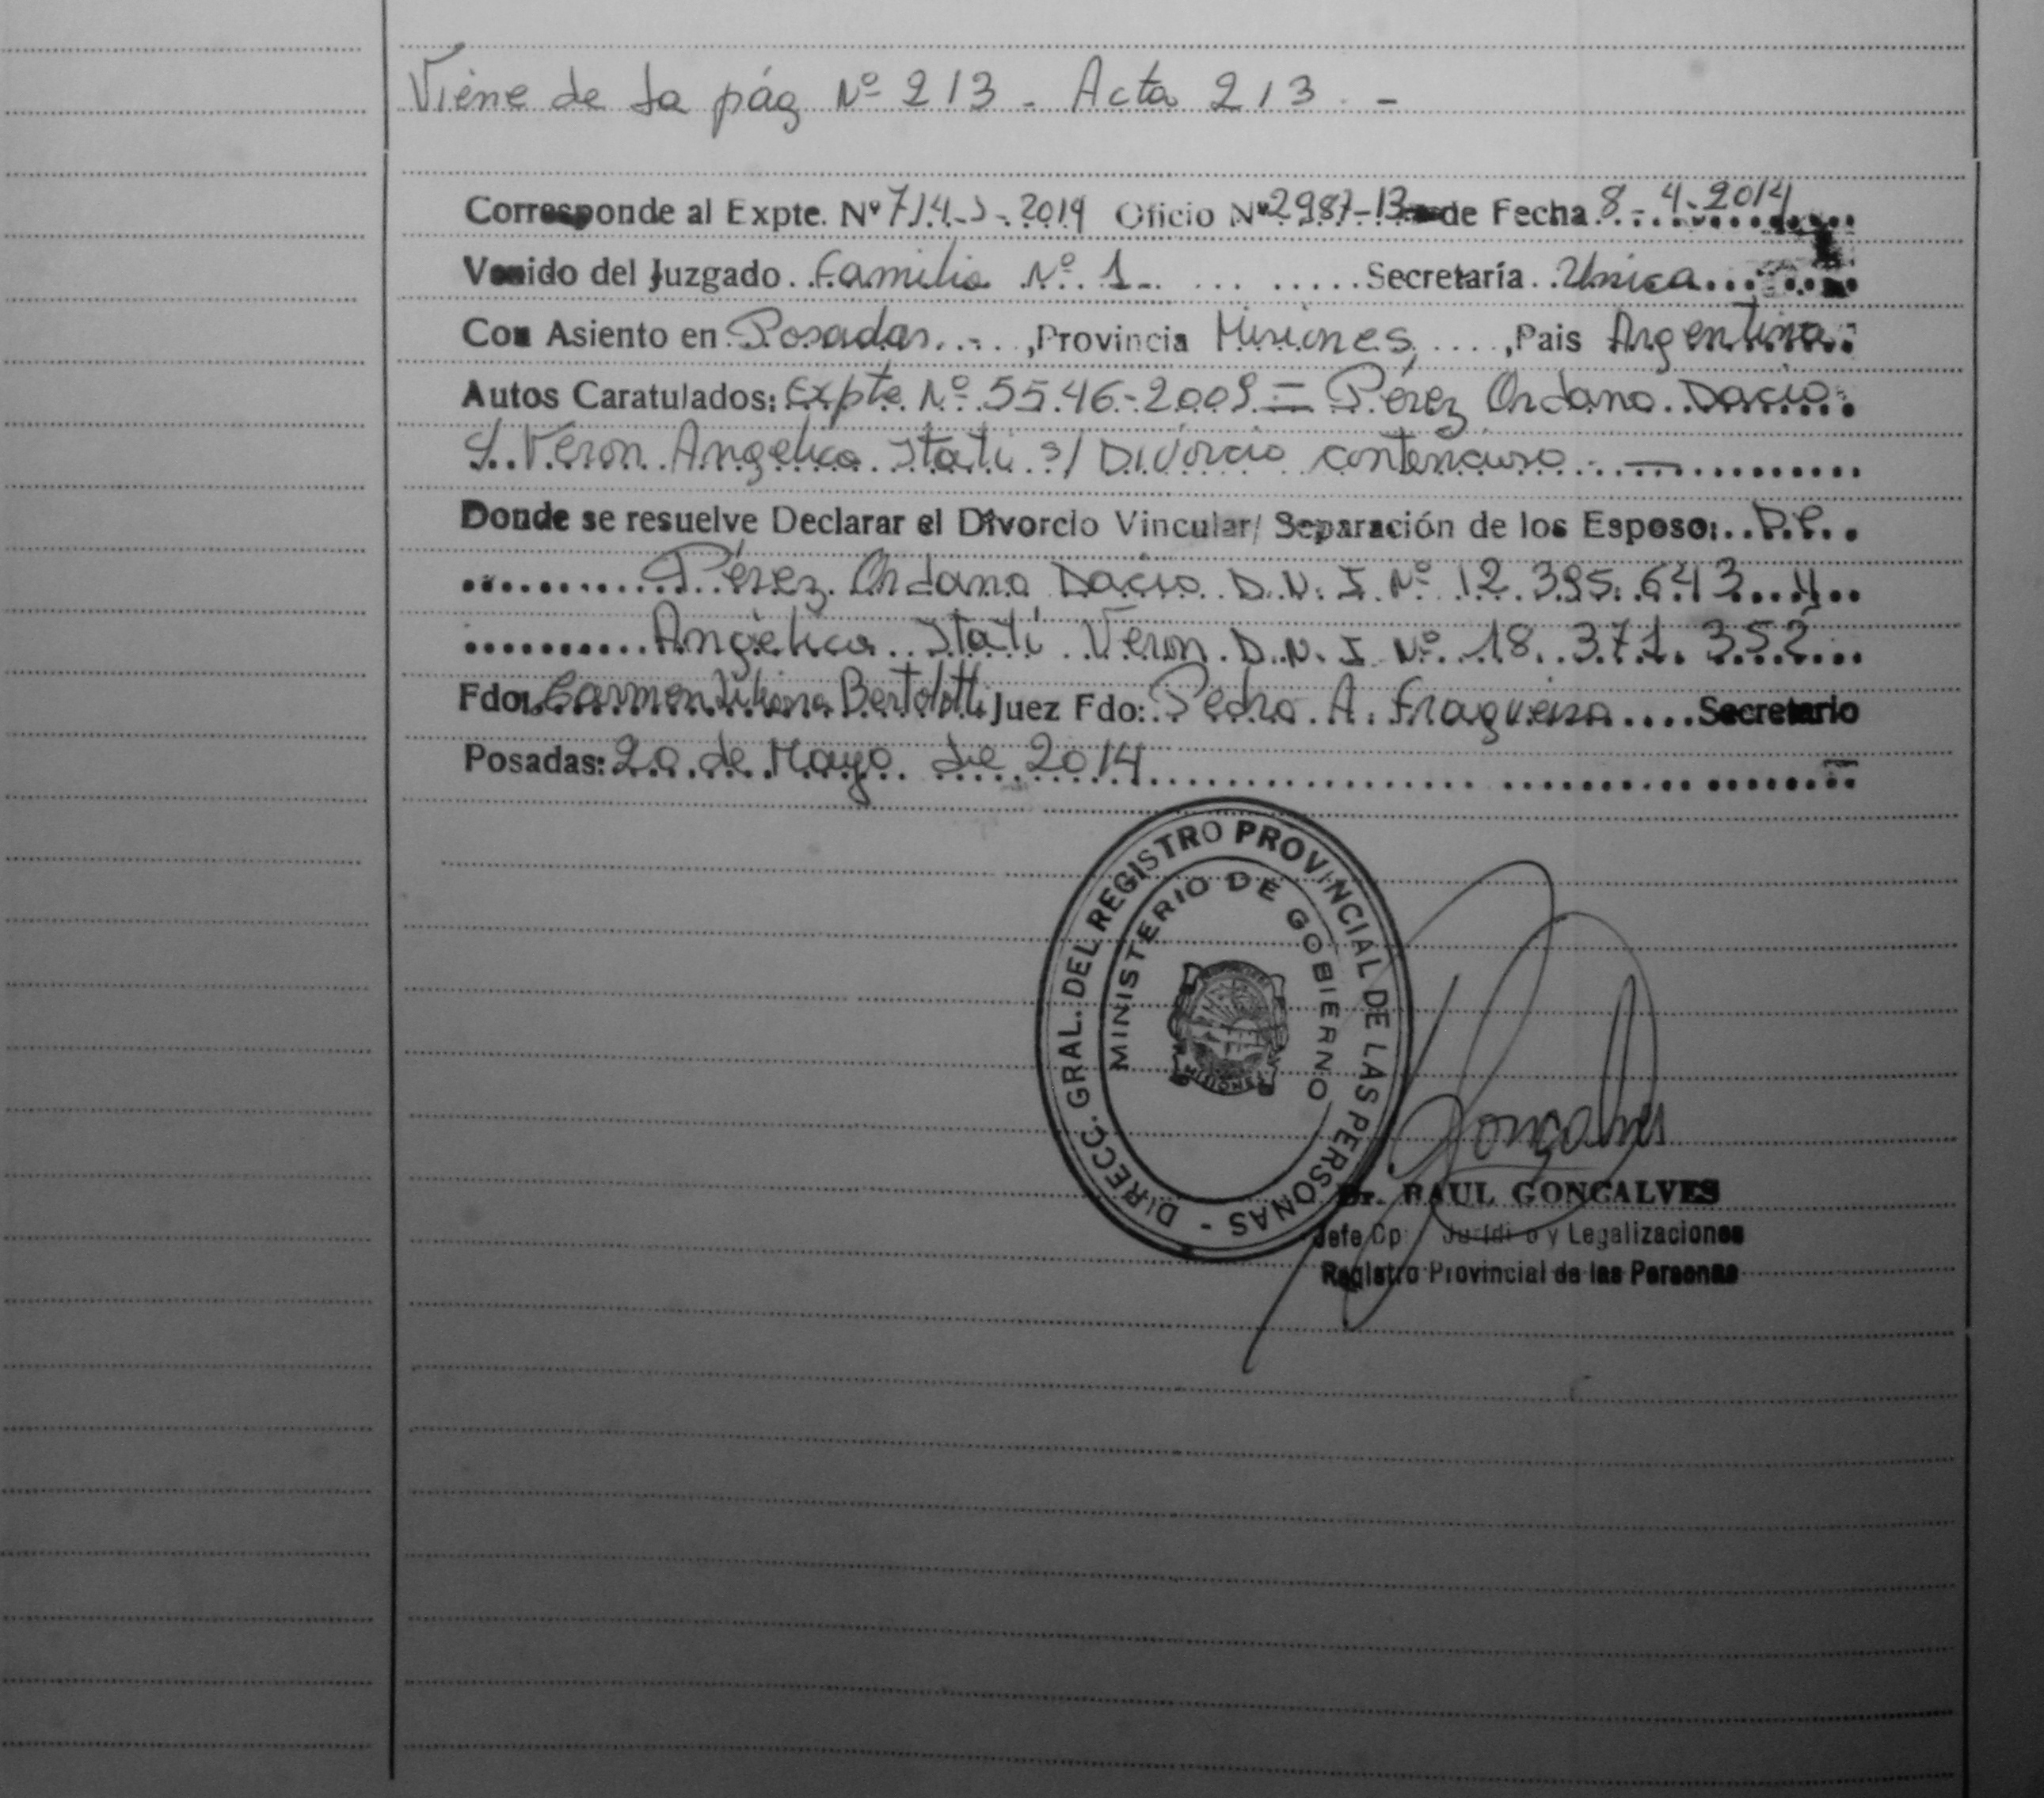 Viene de la pág Nº 213 - Acta 213 . -
Corresponde al Expte. Nº 714-J-2014 Oficio Nº 2987-13 de Fecha 8-4-2014
Venido del Juzgado Familia Nº 1 Secretaría Unica
Con Asiento en Posadas ,Provincia Misiones ,Pais Argentina
Autos Caratulados: Expte Nº 5546-2009 = Pérez Ordano Dacio
Veron Angelica Itati s/ Divorcio contencioso
Donde se resuelve Declarar el Divorcio Vincular/ Separación de los Esposo:
Pérez Ordano Dacio D.N.I. Nº 12.395.643 y
Angelica Itatí Veron D.N.I. Nº 18.371.352
Fdo: Carmen Liliana Bertolotti Juez Fdo: Pedro A. Fragueiro Secretario
Posadas: 20 de Mayo de 2014
DIRECC. GRAL. DEL REGISTRO PROVINCIAL DE LAS PERSONAS -
MINISTERIO DE GOBIERNO
MISIONES
Gonçalves
Dr. RAUL GONCALVES
Jefe y Legalizaciones
Registro Provincial de las Personas